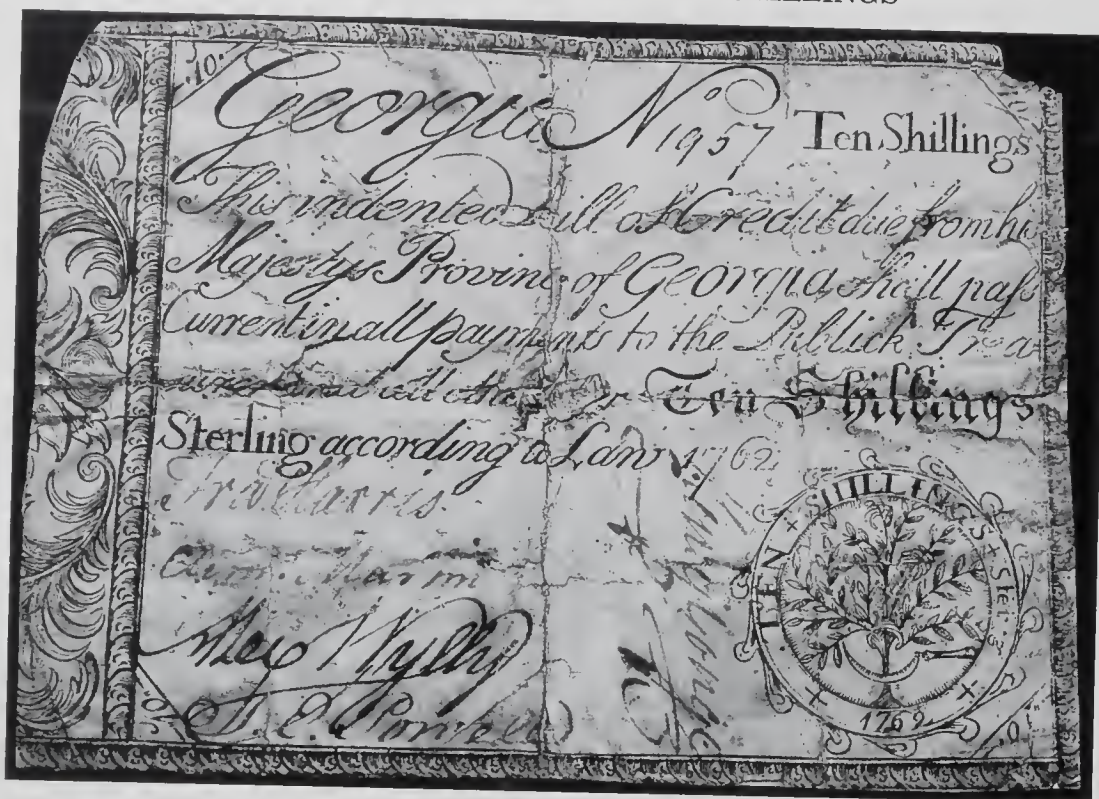 :10:
Georgia No 1957 Ten Shillings
This indented Bill of Credit due from his
Majestys Province of Georgia shall pass
Current in all payments to the Publick Trea
and all other for Ten Shillings
Sterling according to Law 1762
Harris.
Alex Wyly
TEN + SHILLINGS + Ster
1762